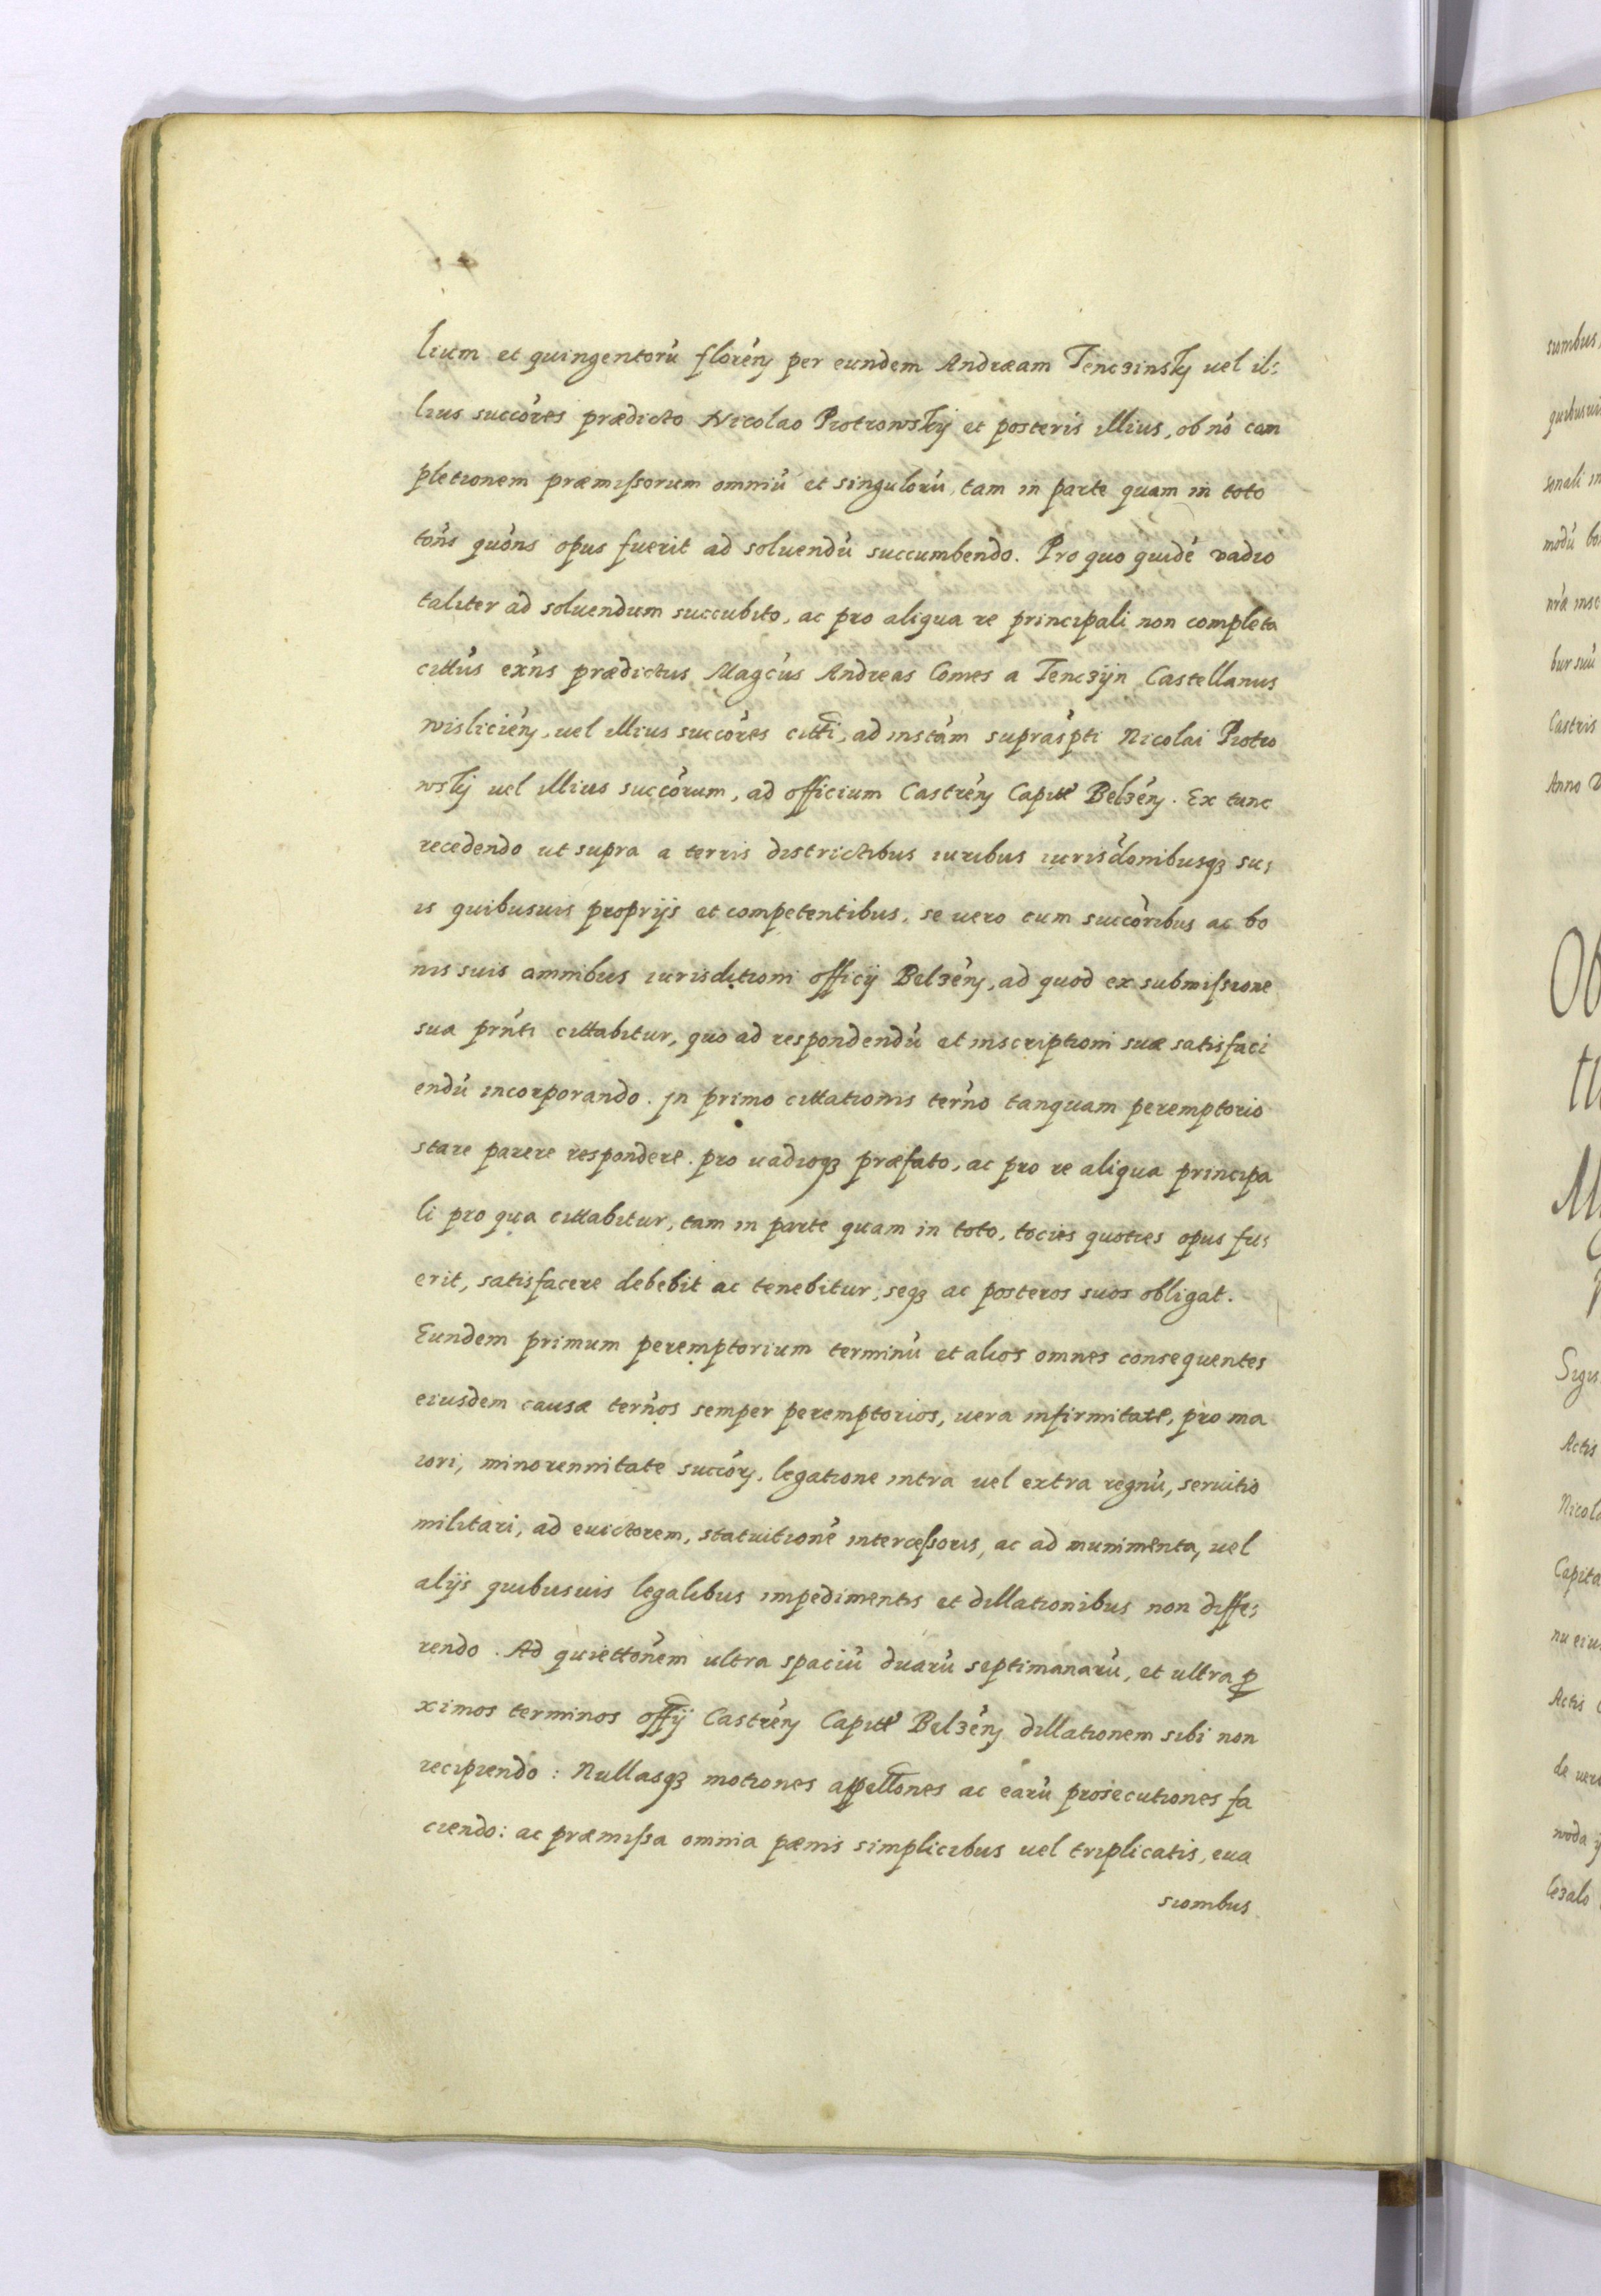 lium et quingentorũ florẽn per eundem Andræam Tenczinskÿ uel il:
lius succõres prædicto Nicolao Piotrowskÿ et posteris illius, ob nõ com
pletionem præmissorum omniũ et singulorũ, tam in parte quam in toto
tõns quõns opus fuerit ad soluendũ succumbendo. Pro quo quidẽ vadio
taliter ad soluendum succubito, ac pro aliqua re principali non completa
cittũs exñs prædictus Magcũs Andreas Comes a Tenczÿn Castellanus
wisliciẽn, uel illius succõres citti, ad instãm suprãspti Nicolai Piotro
wskÿ uel illius succõrum, ad officium Castrẽn Capitt Belzẽn. Ex tunc
recedendo ut supra a terris districtibus iuribus iurisdõnibusqȝ su:
is quibusuis proprijs et competentibus, se uero cum succõribus ac bo
nis suis omnibus iurisditioni officij Belzẽn, ad quod ex submissione
sua prñti cittabitur, quo ad respondendũ et inscriptioni suæ satisfaci
endũ incorporando. Jn primo cittationis terño tanquam peremptorio
stare parere respondere. pro uadioqȝ præfato, ac pro re aliqua principa
li pro qua cittabitur, tam in parte quam in toto, tocies quoties opus fu:
erit, satisfacere debebit ac tenebitur, seqȝ ac posteros suos obligat.
Eundem primum peremptorium terminũ et alios omnes consequentes
eiusdem causæ terños semper peremptorios, uera infirmitate, pro ma
iori, minorennitate succõrum, legatione intra uel extra regnũ, seruitio
militari, ad euictorem, statuitionẽ intercessoris, ac ad munimenta, uel
alijs quibusuis legalibus impedimentis et dillationibus non diffe:
rendo. Ad quiettõnem ultra spaciũ duarũ septimanarũ, et ultra ꝓ
ximos terminos offij Castrẽn Capitt Belzẽn dillationem sibi non
recipiendo: Nullasqȝ motiones appellones ac earũ prosecutiones fa
ciendo: ac præmissa omnia pænis simplicibus uel triplicatis, eua
sionibus
sumbus,
Castris
Anno
Ob
Actis
Capita
Actis